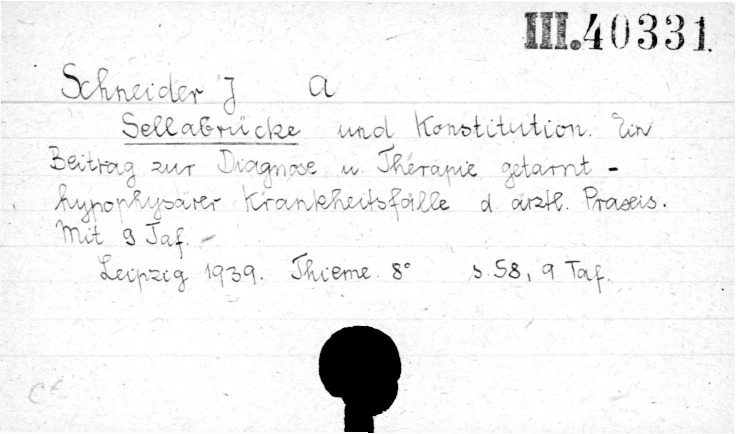 III.40331.
Schneider J A
Sellabrücke und Konstitution. Ein
Beitrag zur Diagnose u. Therapie getarnt-
hypophysärer Krankheitsfälle d. ärztl. Praxis.
Mit 9 Taf. -
Leipzig 1939. Thieme 8° s. 58, 9 Taf.